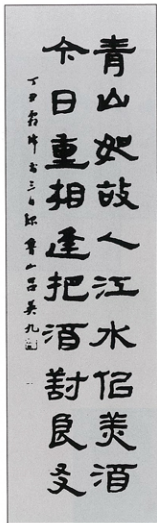 青山如故人江水似美酒
今日重相逢把酒對良友
丁丑